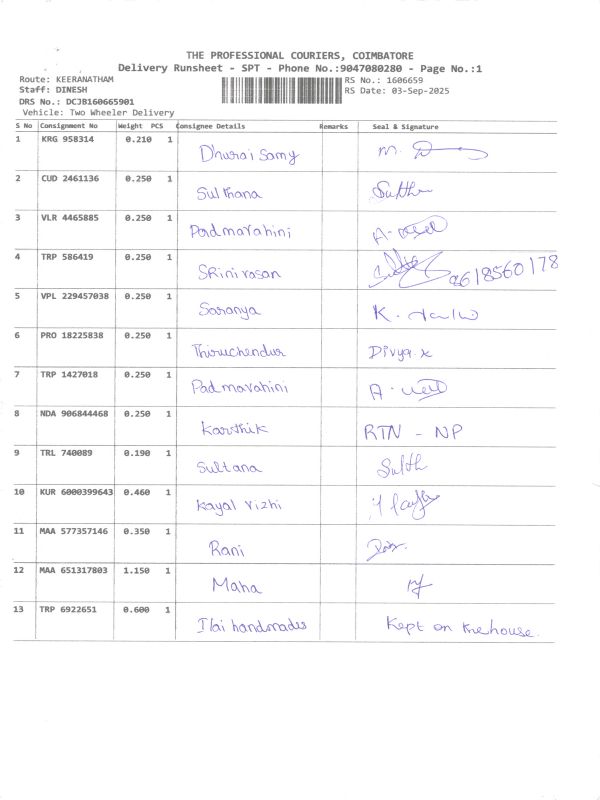 THE PROFESSIONAL COURIERS, COIMBATORE
Delivery Runsheet - SPT - Phone No.:9047080280 - Page No.:1
Route: KEERANATHAM RS No.: 1606659
Staff: DINESH RS Date: 03-Sep-2025
DRS No.: DCJB160665901
Vehicle: Two Wheeler Delivery
S No Consignment No Weight PCS Consignee Details Remarks Seal & Signature
1 KRG 958314 0.210 1 Dhurai Samy M.
2 CUD 2461136 0.250 1 Sulthana Sulth
3 VLR 4465885 0.250 1 Padmavahini A.
4 TRP 586419 0.250 1 SRinivasan 9618560178
5 VPL 229457038 0.250 1 Saranya K.
6 PRO 18225838 0.250 1 Thiruchendur Divya.k
7 TRP 1427018 0.250 1 Padmavahini A.
8 NDA 906844468 0.250 1 Karthik RTN - NP
9 TRL 740089 0.190 1 Sultana Sulth
10 KUR 6000399643 0.460 1 Kayal vizhi
11 MAA 577357146 0.350 1 Rani
12 MAA 651317803 1.150 1 Maha
13 TRP 6922651 0.600 1 Ilai handmades Kept on the house.